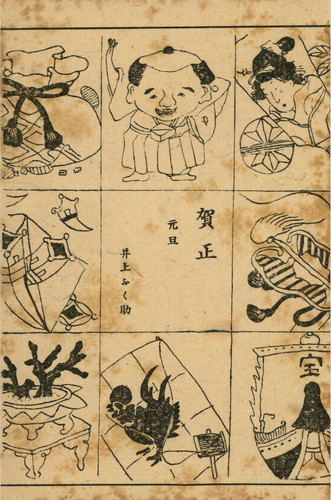 賀正
元旦
井上ふく助
宝